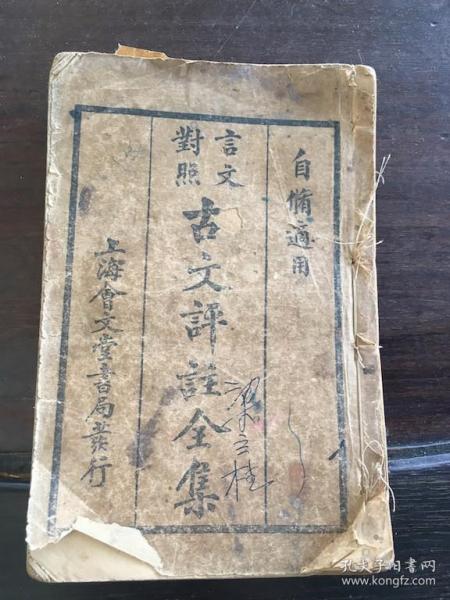 自脩適用
言文
對照
古文評註全集
上海會文堂書局發行
梁立桂
孔夫子旧书网
www.kongfz.com